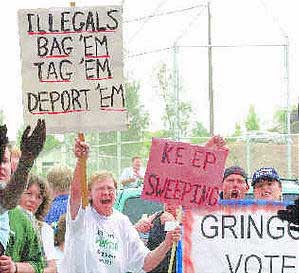 ILLEGALS
BAG 'EM
TAG 'EM
DEPORT 'EM
KEEP
SWEEPING
GRINGO
VOTE